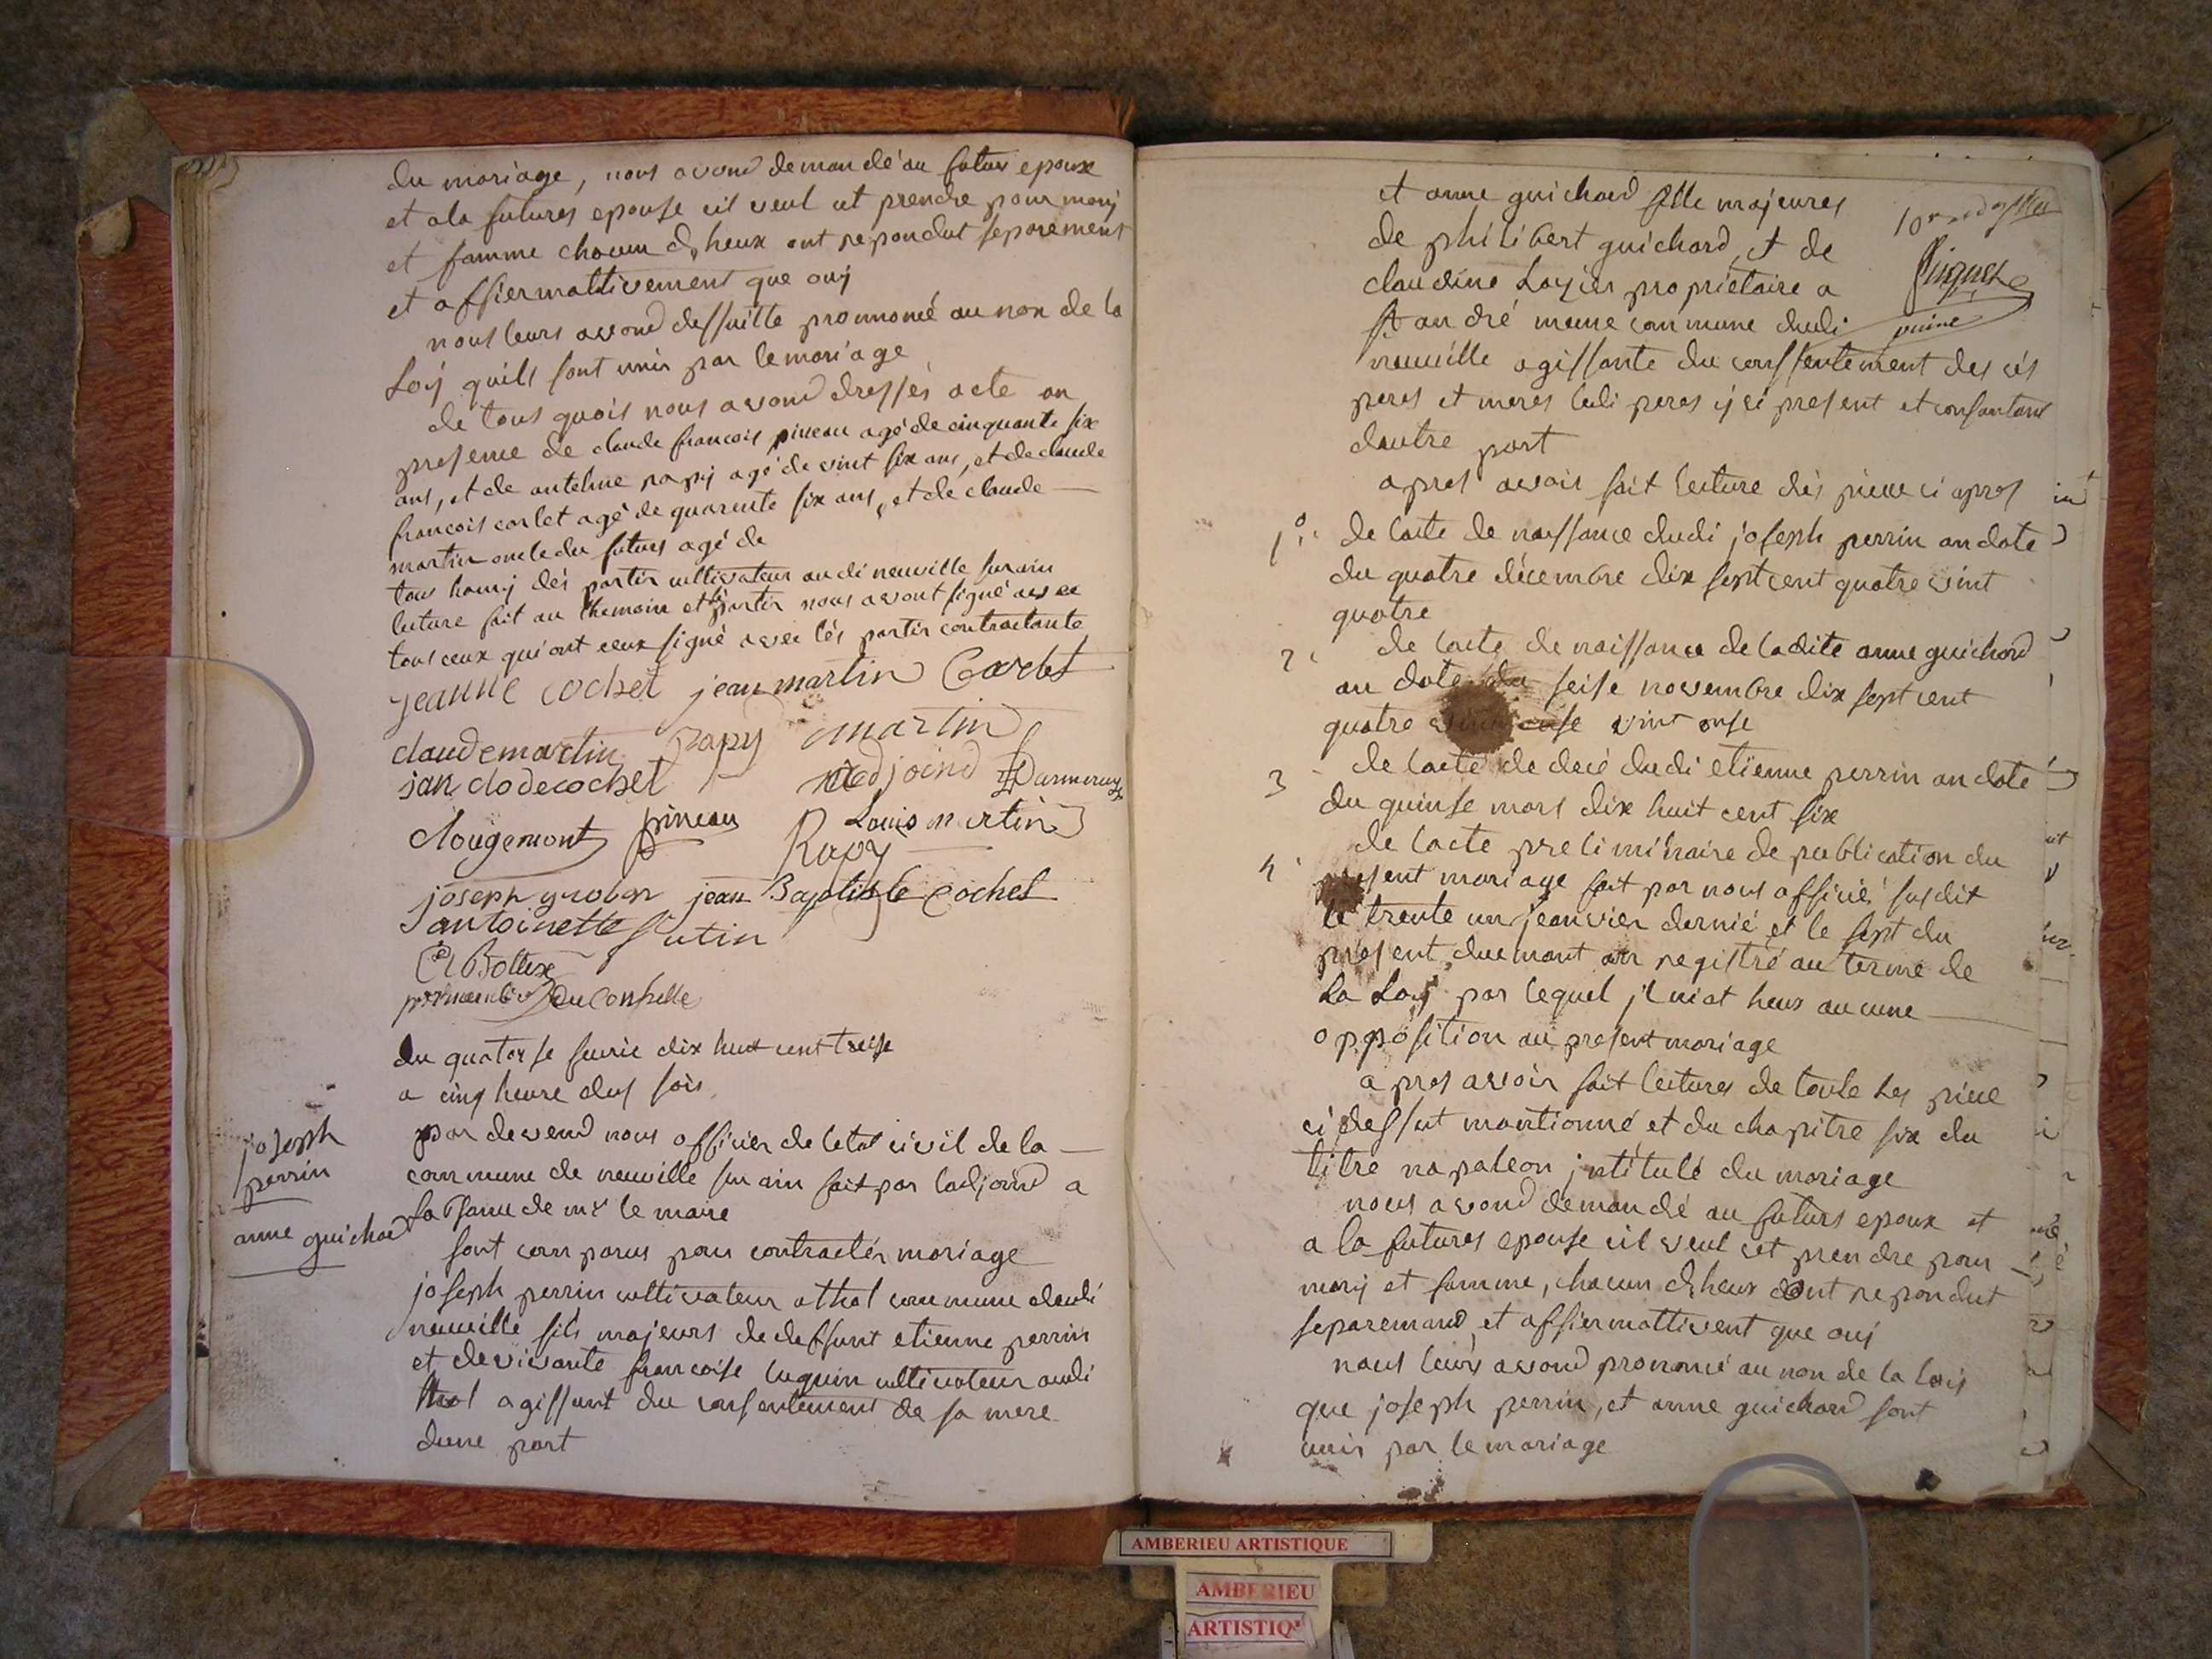 du mariage, nous avond demandé au futur epoux
et ala futures epouse cil veul cet prendre pour marÿ
et famme chacun d, heux ont repondut separement
et affiermattivement que ouÿ
nous leurs avond dessuitte prononcé au non de la
Loÿ quill sont unis par le mariage
de tous quois nous avond dressés acte an
presence de claude francois pineau agé de cinquante six
ans, et de antelme rapÿ agé de vint six ans, et de claude
francois carlet agé de quarente six ans, et de claude
martin oncle du futurs agé de
tous homÿ dés partis cultivateur audi neuville sur ain
lecture fait au themoin et partis nous avont signé avec
tous ceux qui ont ceux signé avec lés partis contractante
jeanne cochet jean martin Carlet
claude martin rapy martin
jan clode cochet adjoind
Rougemont pineau Louis martin
Rapy
joseph grobon jean Baptiste cochet
antoinette Sutin
Bottex
du Conseille
du quatorse fevrié dix huit cent treise
a cinq heure dus sois
joseph
perrin
anne guichard
par devend nous officier de letat civil de la
commune de neuville sur ain fait par ladjoind a
la Sanue de mr le maire
sont comparus pour contractér mariage
joseph perrin cultivateur a thol commune dudi
neuville fils majeurs de deffunt etienne perrin
et de vivante francoise luquin cultivateur audi
thol agissant du consentement de sa mere
dune part
et anne guichard fille majeures
de philibert guichard, et de
claudine Loyier propriétaire a
St andré meme commune dudi
neuville agissante du conssentement des cés
peres et meres ledi peres ÿci present et consantant
dautre part
apres avoir fait lecture dés piece ci apres
1°. de lacte de naissance dudi joseph perrin an date
du quatre décembre dix sept cent quatre vint
quatre
2 de lacte de naissance de ladite anne guichard
an date du seise novembre dix sept cent
quatre vint onse
3 de lacte de decé dudi etienne perrin an date
du quinse mars dix huit cent six
4 de lacte preliminaire de publication du
present mariage fait par nous officié susdit
le trente un jeanvier dernié et le sept du
present duemant an registré au terme de
La Loÿ par lequel jl niat heus aucune
opposition au present mariage
apres avoir fait lectures de toute les piece
ci dessut mantionné et du chapitre six du
titre napaleon jntitulé du mariage
nous avond demandé au futurs epoux et
a la futures epouse cil veul cet prendre pour
marÿ et famme, chacun d, heux ont repondut
separemand, et affiermattivent que ouÿ
nous leurs avond prononcé au non de la lois
que joseph perrin, et anne guichard sont
unis par le mariage
AMBERIEU ARTISTIQUE
AMBERIEU
ARTISTIQ